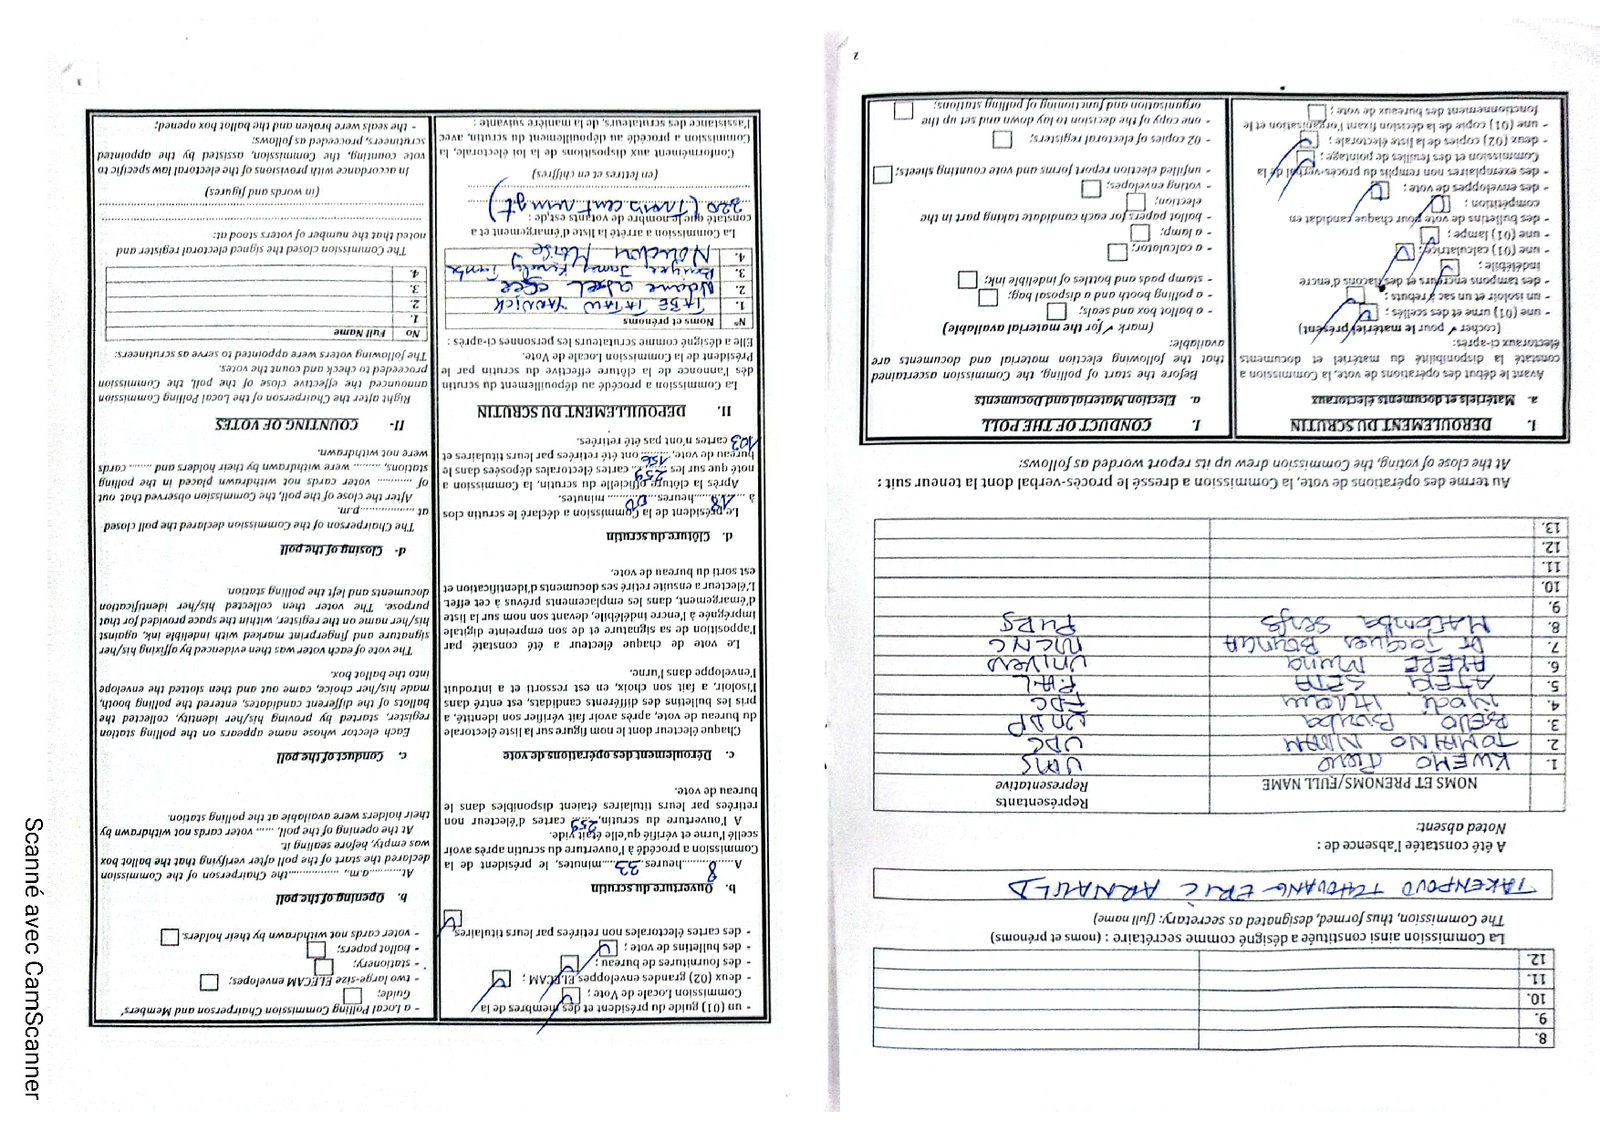 8.
9.
10.
11.
12.
La Commission ainsi constituée a désigné comme secrétaire : (noms et prénoms)
The Commission, thus formed, designated as secretary: (full name)
TAKENPOUO TCHOUANG ERIC ARNAULD
A été constatée l'absence de :
Noted absent:
NOMS ET PRENOMS/FULL NAME
Représentants
Representative
1. KWEMO Pierre UMS
2. TOMAINO NDAM UDC
3. BELLO Bouba UNDP
4. Njodi Hilaou FDC
5. ATEKI SETA PAL
6. AKERE Muna UNIVERS
7. Dr Jacques BOUNGHA MCNC
8. MATOMBA Serge PURS
9.
10.
11.
12.
13.
Au terme des opérations de vote, la Commission a dressé le procès-verbal dont la teneur suit :
At the close of voting, the Commission drew up its report worded as follows:
I. DEROULEMENT DU SCRUTIN
a. Matériels et documents électoraux
Avant le début des opérations de vote, la Commission a
constaté la disponibilité du matériel et documents
électoraux ci-après:
(cocher ✓ pour le matériel présent)
- une (01) urne et des scellés ;
- un isoloir et un sac à rebuts ;
- des tampons encreurs et des flacons d'encre
indélébile ;
- une (01) calculatrice ;
- une (01) lampe ;
- des bulletins de vote pour chaque candidat en
compétition ;
- des enveloppes de vote ;
- des exemplaires non remplis du procès-verbal de la
Commission et des feuilles de pointage ;
- deux (02) copies de la liste électorale ;
- une (01) copie de la décision fixant l'organisation et le
fonctionnement des bureaux de vote ;
I. CONDUCT OF THE POLL
a. Election Material and Documents
Before the start of polling, the Commission ascertained
that the following election material and documents are
available:
(mark ✓ for the material available)
- a ballot box and seals;
- a polling booth and a disposal bag;
- stamp pads and bottles of indelible ink;
- a calculator;
- a lamp;
- ballot papers for each candidate taking part in the
election;
- voting envelopes;
- unfilled election report forms and vote counting sheets;
- 02 copies of electoral registers;
- one copy of the decision to lay down and set up the
organisation and functioning of polling stations;
2
- un (01) guide du président et des membres de la
Commission Locale de Vote ;
- deux (02) grandes enveloppes ELECAM ;
- des fournitures de bureau ;
- des bulletins de vote ;
- des cartes électorales non retirées par leurs titulaires.
b. Ouverture du scrutin
A 8 heures 33 minutes, le président de la
Commission a procédé à l'ouverture du scrutin après avoir
scellé l'urne et vérifié qu'elle était vide.
A l'ouverture du scrutin, 259 cartes d'électeur non
retirées par leurs titulaires étaient disponibles dans le
bureau de vote.
c. Déroulement des opérations de vote
Chaque électeur dont le nom figure sur la liste électorale
du bureau de vote, après avoir fait vérifier son identité, a
pris les bulletins des différents candidats, est entré dans
l'isoloir, a fait son choix, en est ressorti et a introduit
l'enveloppe dans l'urne.
Le vote de chaque électeur a été constaté par
l'apposition de sa signature et de son empreinte digitale
imprégnée à l'encre indélébile, devant son nom sur la liste
d'émargement, dans les emplacements prévus à cet effet.
L'électeur a ensuite retiré ses documents d'identification et
est sorti du bureau de vote.
d. Clôture du scrutin
Le président de la Commission a déclaré le scrutin clos
à 18 heures 00 minutes.
Après la clôture officielle du scrutin, la Commission a
noté que sur les 259 cartes électorales déposées dans le
bureau de vote, 156 ont été retirées par leurs titulaires et
103 cartes n'ont pas été retirées.
II. DEPOUILLEMENT DU SCRUTIN
La Commission a procédé au dépouillement du scrutin
dès l'annonce de la clôture effective du scrutin par le
Président de la Commission Locale de Vote.
Elle a désigné comme scrutateurs les personnes ci-après :
N° Noms et prénoms
1. TABE TATAW YANNICK
2. Ndame
3. James Kinely
4. Moïse
La Commission a arrêté la liste d'émargement et a
constaté que le nombre de votants est de :
320 (Trois cent vingt)
(en lettres et en chiffres)
Conformément aux dispositions de la loi électorale, la
Commission a procédé au dépouillement du scrutin, avec
l'assistance des scrutateurs, de la manière suivante :
- a Local Polling Commission Chairperson and Members'
Guide;
- two large-size ELECAM envelopes;
- stationery;
- ballot papers;
- voter cards not withdrawn by their holders.
b. Opening of the poll
At..........a.m., ...............the Chairperson of the Commission
declared the start of the poll after verifying that the ballot box
was empty, before sealing it.
At the opening of the poll, ..... voter cards not withdrawn by
their holders were available at the polling station.
c. Conduct of the poll
Each elector whose name appears on the polling station
register, started by proving his/her identity, collected the
ballots of the different candidates, entered the polling booth,
made his/her choice, came out and then slotted the envelope
into the ballot box.
The vote of each voter was then evidenced by affixing his/her
signature and fingerprint marked with indelible ink, against
his/her name on the register, within the space provided for that
purpose. The voter then collected his/her identification
documents and left the polling station.
d- Closing of the poll
The Chairperson of the Commission declared the poll closed
at ................p.m.
After the close of the poll, the Commission observed that out
of .......... voter cards not withdrawn placed in the polling
stations, ........ were withdrawn by their holders and ...... cards
were not withdrawn.
II- COUNTING OF VOTES
Right after the Chairperson of the Local Polling Commission
announced the effective close of the poll, the Commission
proceeded to check and count the votes.
The following voters were appointed to serve as scrutineers:
No Full Name
1.
2.
3.
4.
The Commission closed the signed electoral register and
noted that the number of voters stood at:
(in words and figures)
In accordance with provisions of the electoral law specific to
vote counting, the Commission, assisted by the appointed
scrutineers, proceeded as follows:
- the seals were broken and the ballot box opened;
3
Scanné avec CamScanner